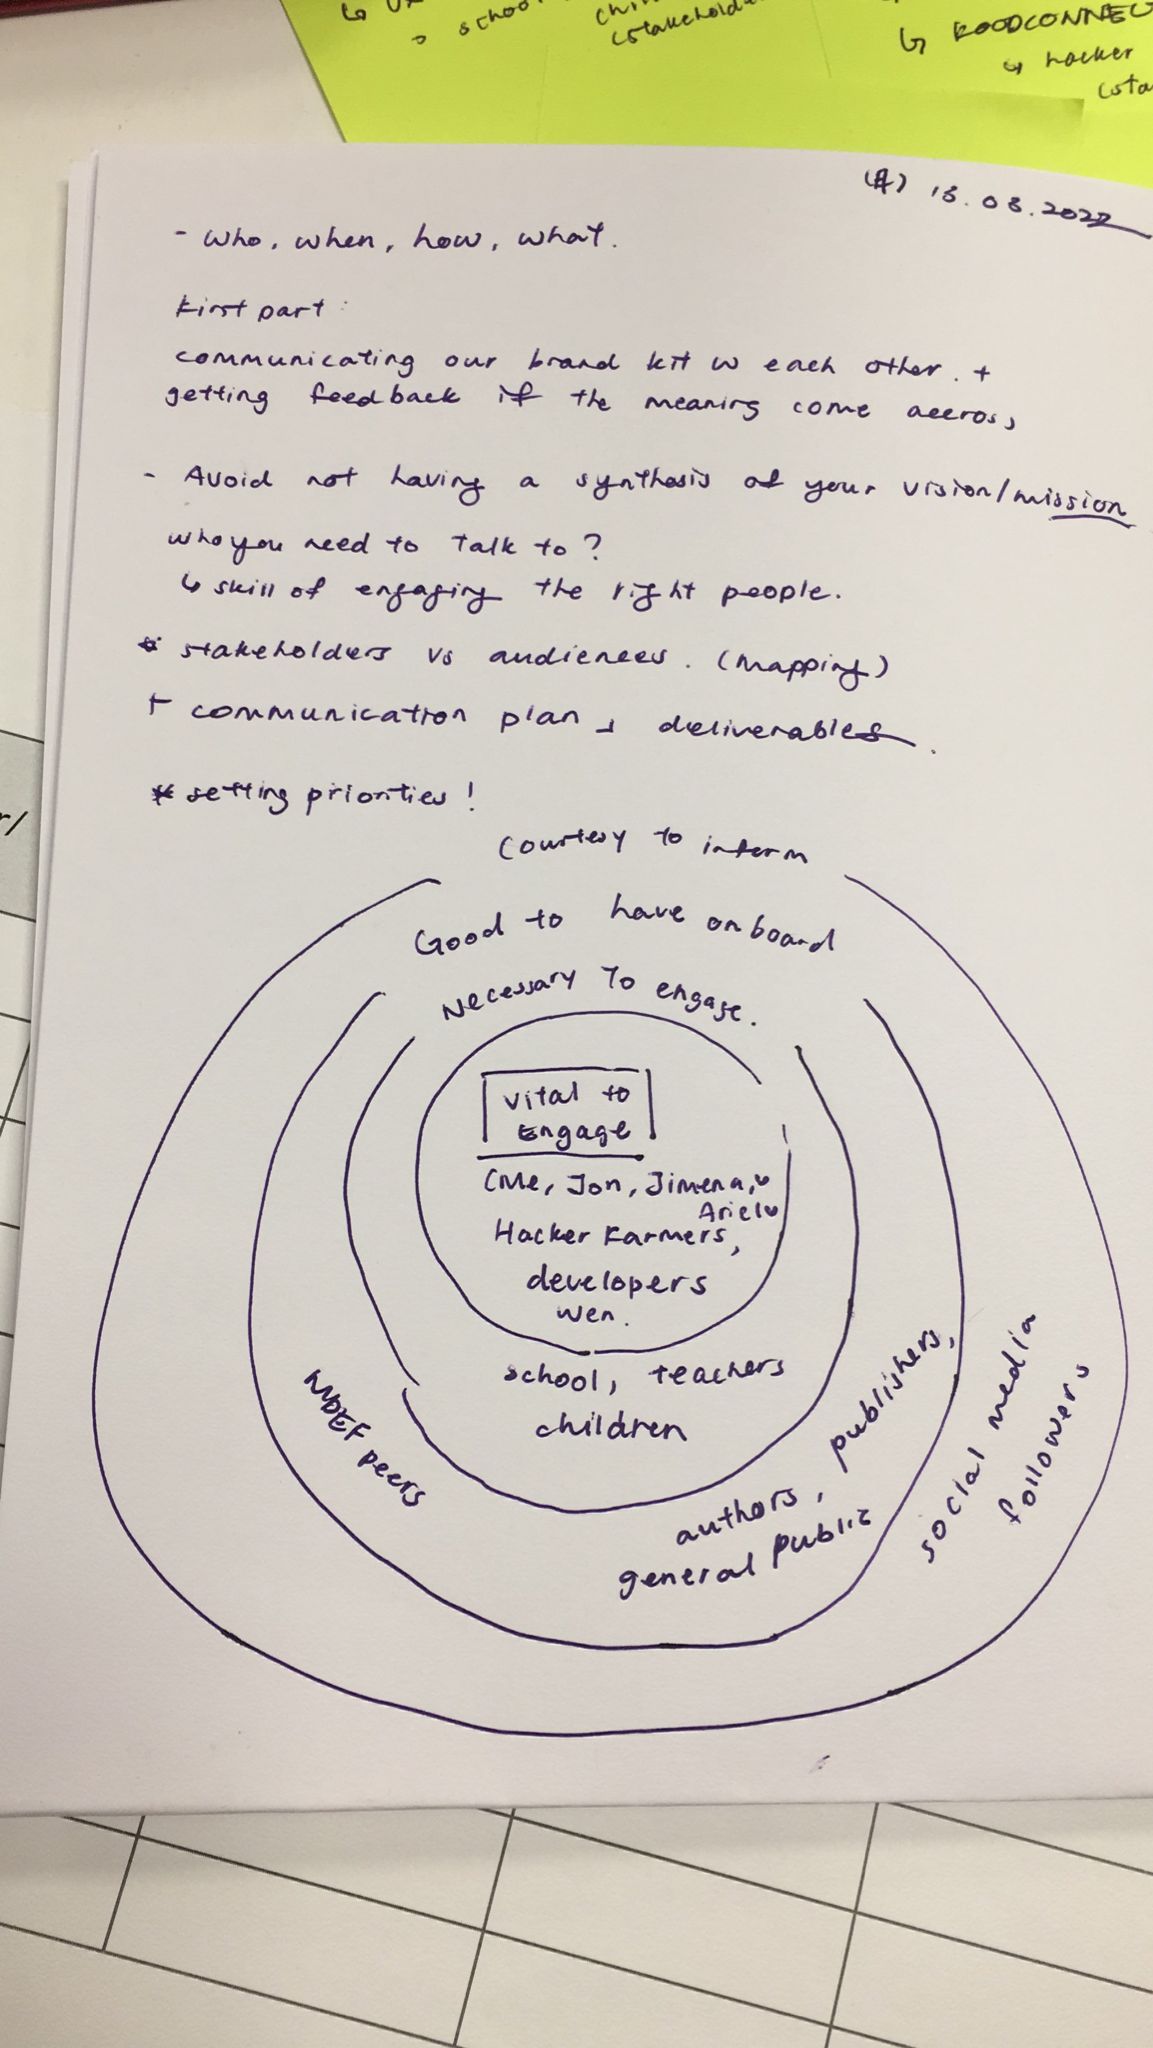 school
(stakehold
hacker
(sta
(4) 15.03.2022
- Who, when, how, what.
First part:
communicating our brand kit w each other. +
getting feedback if the meaning come accross,
- Avoid not having a synthesis of your vision/mission
who you need to talk to?
↳ skill of engaging the right people.
* stakeholders vs audiences. (mapping)
+ communication plan + deliverables.
* setting priorities!
Courtesy to inform
Good to have onboard
Necessary To engage.
Vital to
Engage
(Me, Jon, Jimena,
Ariel
Hacker Farmers,
developers
Wen.
school, teachers
children
MDEF peers
authors, publishers,
general public
social media
followers